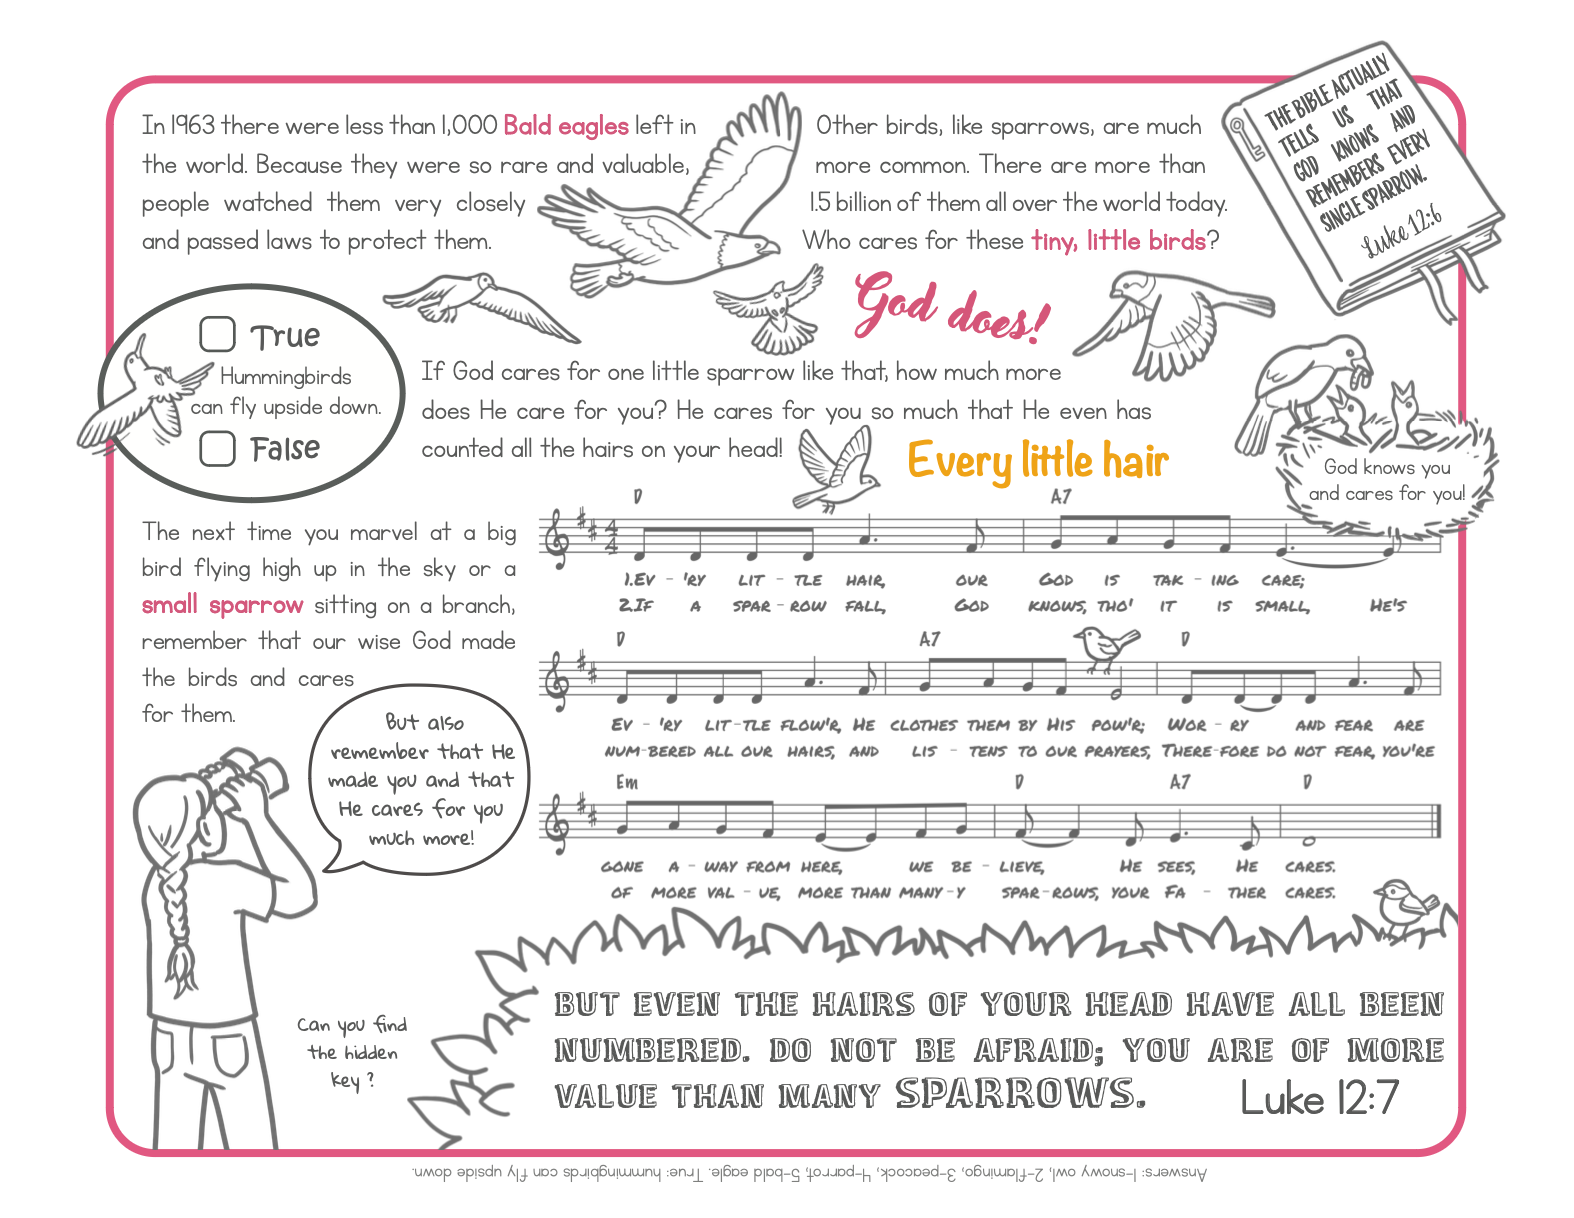 In 1963 there were less than 1,000 Bald eagles left in
the world. Because they were so rare and valuable,
people watched them very closely
and passed laws to protect them.
Other birds, like sparrows, are much
more common. There are more than
1.5 billion of them all over the world today.
Who cares for these tiny, little birds?
God does!
THE BIBLE ACTUALLY
TELLS US THAT
GOD KNOWS AND
REMEMBERS EVERY
SINGLE SPARROW.
Luke 12:6
True
Hummingbirds
can fly upside down.
False
If God cares for one little sparrow like that, how much more
does He care for you? He cares for you so much that He even has
counted all the hairs on your head!
God knows you
and cares for you!
The next time you marvel at a big
bird flying high up in the sky or a
small sparrow sitting on a branch,
remember that our wise God made
the birds and cares
for them.
But also
remember that He
made you and that
He cares for you
much more!
Every little hair
D A7
4
4
1.EV - 'RY LIT - TLE HAIR, OUR GOD IS TAK - ING CARE;
2.IF A SPAR - ROW FALL, GOD KNOWS, THO' IT IS SMALL, HE'S
D A7 D
EV - 'RY LIT - TLE FLOW'R, HE CLOTHES THEM BY HIS POW'R; WOR - RY AND FEAR ARE
NUM-BERED ALL OUR HAIRS, AND LIS - TENS TO OUR PRAYERS, THERE-FORE DO NOT FEAR, YOU'RE
Em D A7 D
GONE A - WAY FROM HERE, WE BE - LIEVE, HE SEES, HE CARES.
OF MORE VAL - UE, MORE THAN MANY-Y SPAR-ROWS, YOUR FA - THER CARES.
Can you find
the hidden
key ?
BUT EVEN THE HAIRS OF YOUR HEAD HAVE ALL BEEN
NUMBERED. DO NOT BE AFRAID; YOU ARE OF MORE
VALUE THAN MANY SPARROWS. Luke 12:7
Answers: 1-snowy owl, 2-flamingo, 3-peacock, 4-parrot, 5-bald eagle. True: hummingbirds can fly upside down.